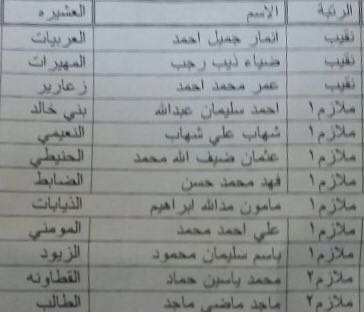 الرتبة الاسم العشيره
نقيب انمار جميل احمد العربيات
نقيب ضياء ذيب رجب المهيرات
نقيب عمر محمد احمد زعارير
ملازم ١ احمد سليمان عبدالله بني خالد
ملازم ١ شهاب علي شهاب النعيمي
ملازم ١ عثمان ضيف الله محمد الحنيطي
ملازم ١ فهد محمد حسن الضابط
ملازم ١ مامون مدالله ابراهيم الذيابات
ملازم ١ علي احمد محمد المومني
ملازم ١ باسم سليمان محمود الزيود
ملازم ٢ محمد ياسين حماد القطاونه
ملازم ٢ ماجد ماضي ماجد الطالب